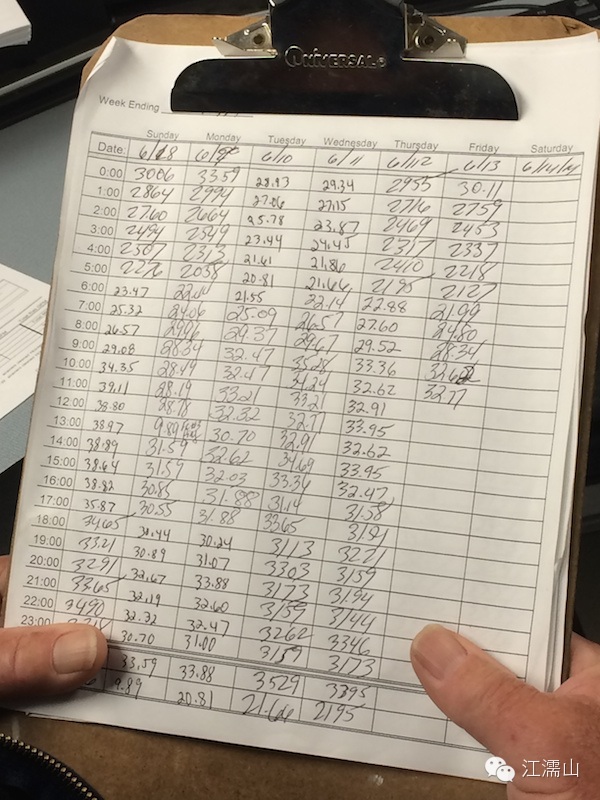 UNIVERSAL
Week Ending
Sunday Monday Tuesday Wednesday Thursday Friday Saturday
Date: 6/10 6/11 6/12 6/13
0:00 3006 3359 28.93 29.34 2955 30.11
1:00 2864 2994 27.06 27.15 2716 2759
2:00 2760 2664 25.78 23.87 2469 2453
3:00 2494 2549 23.44 24.45 2317 2337
4:00 2307 2313 21.61 21.86 2410 2218
5:00 2276 2058 20.81 21.66 2195 2127
6:00 23.47 21.55 22.14 22.88 21.99
7:00 25.32 24.06 25.09 26.57 27.60 24.80
8:00 26.57 29.37 29.67 29.52 28.34
9:00 29.08 28.34 32.47 35.28 33.36
10:00 34.35 28.49 32.47 34.24 32.62
11:00 39.11 28.19 3321 33.21 32.91
12:00 38.80 28.78 32.32 32.77 33.95
13:00 38.97 9.89 30.70 32.91 32.62
14:00 38.89 31.59 32.62 34.69 33.95
15:00 38.64 31.59 32.03 33.34 32.47
16:00 38.82 30.85 31.88 31.14 3158
17:00 35.87 30.55 31.88 3365
18:00 3465 30.24 3113 3221
19:00 3321 30.89 31.07 3303 3159
20:00 3291 32.67 33.88 3173 3194
21:00 3365 32.19 32.60 3159 3144
22:00 3490 32.32 32.47 3262 3346
23:00 30.70 31.00 3159 3173
33.59 33.88 3529 3395
9.89 20.81 21.66 2195
江濡山